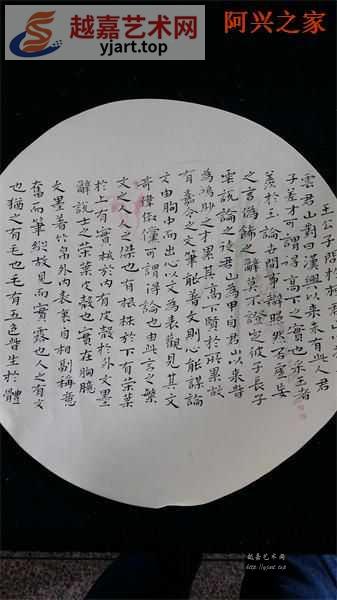 越嘉艺术网
yjart.top
阿兴之家
王公子問於桓君山以
雲君山對曰漢興以來未有此人君
子差才可謂得高下之實也采玉者
羨於三論世間事辯照然否虛妄
之言偽飾之辭莫不證定彼子長子
雲說論之徒君山為甲自君山以來皆
為鴻眇之才累其高下賢於所累故
有嘉令之文筆能著文則心能謀論
文由胸中而出心以文為表觀見其文
奇偉俶儻可謂得論也由此言之繁
文之人人之傑也有根株於下有榮葉
於上有實核於內有皮殼於外文墨
辭說士之榮葉皮殼也實在胸臆
文墨著竹帛外內表裏自相副稱意
奮而筆縱故見而實露也人之有文
也猶之有毛也毛有五色皆生於體
越嘉艺术网
http://yjart.top